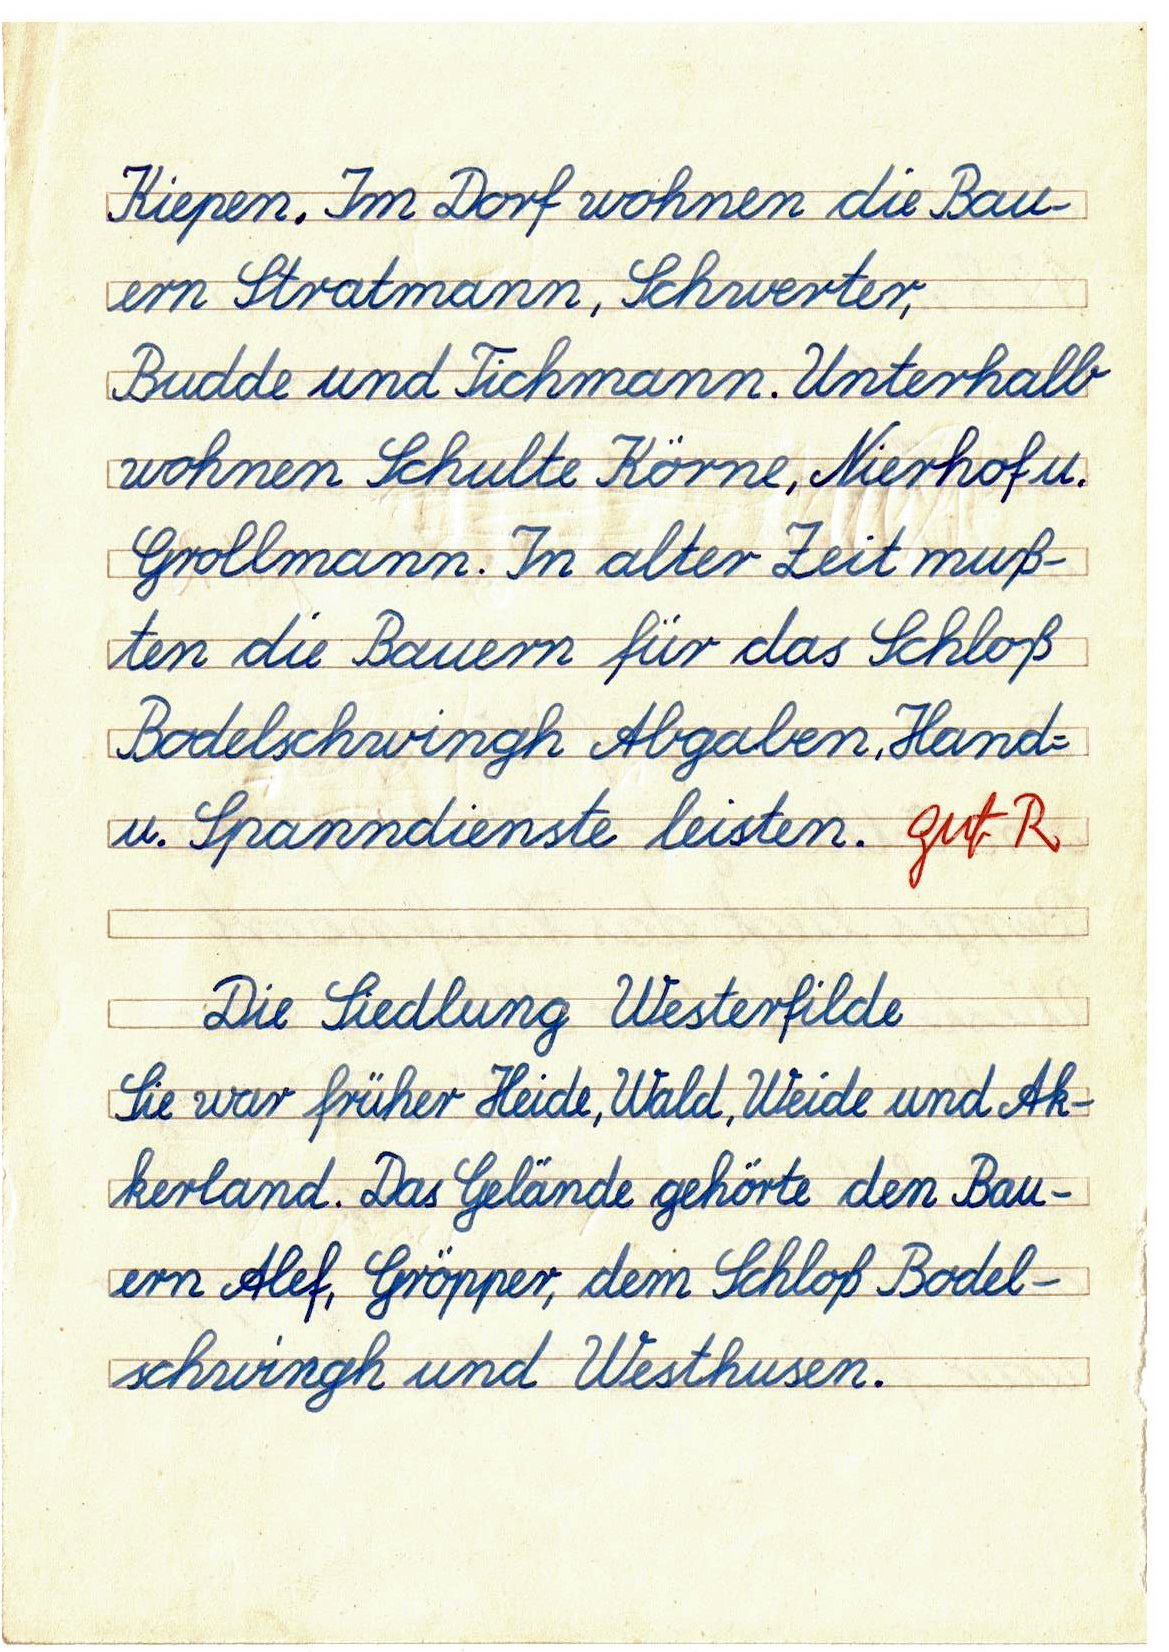 Kiepen. Im Dorf wohnen die Bau-
ern Stratmann, Schwerter,
Budde und Tichmann. Unterhalb
wohnen Schulte Körne, Nierhof u.
Grollmann. In alter Zeit muß-
ten die Bauern für das Schloß
Bodelschwingh Abgaben, Hand=
u. Spanndienste leisten. gut R
Die Siedlung Westerfilde
Sie war früher Heide, Wald, Weide und Ak-
kerland. Das Gelände gehörte den Bau-
ern Alef, Gröpper, dem Schloß Bodel-
schwingh und Westhusen.